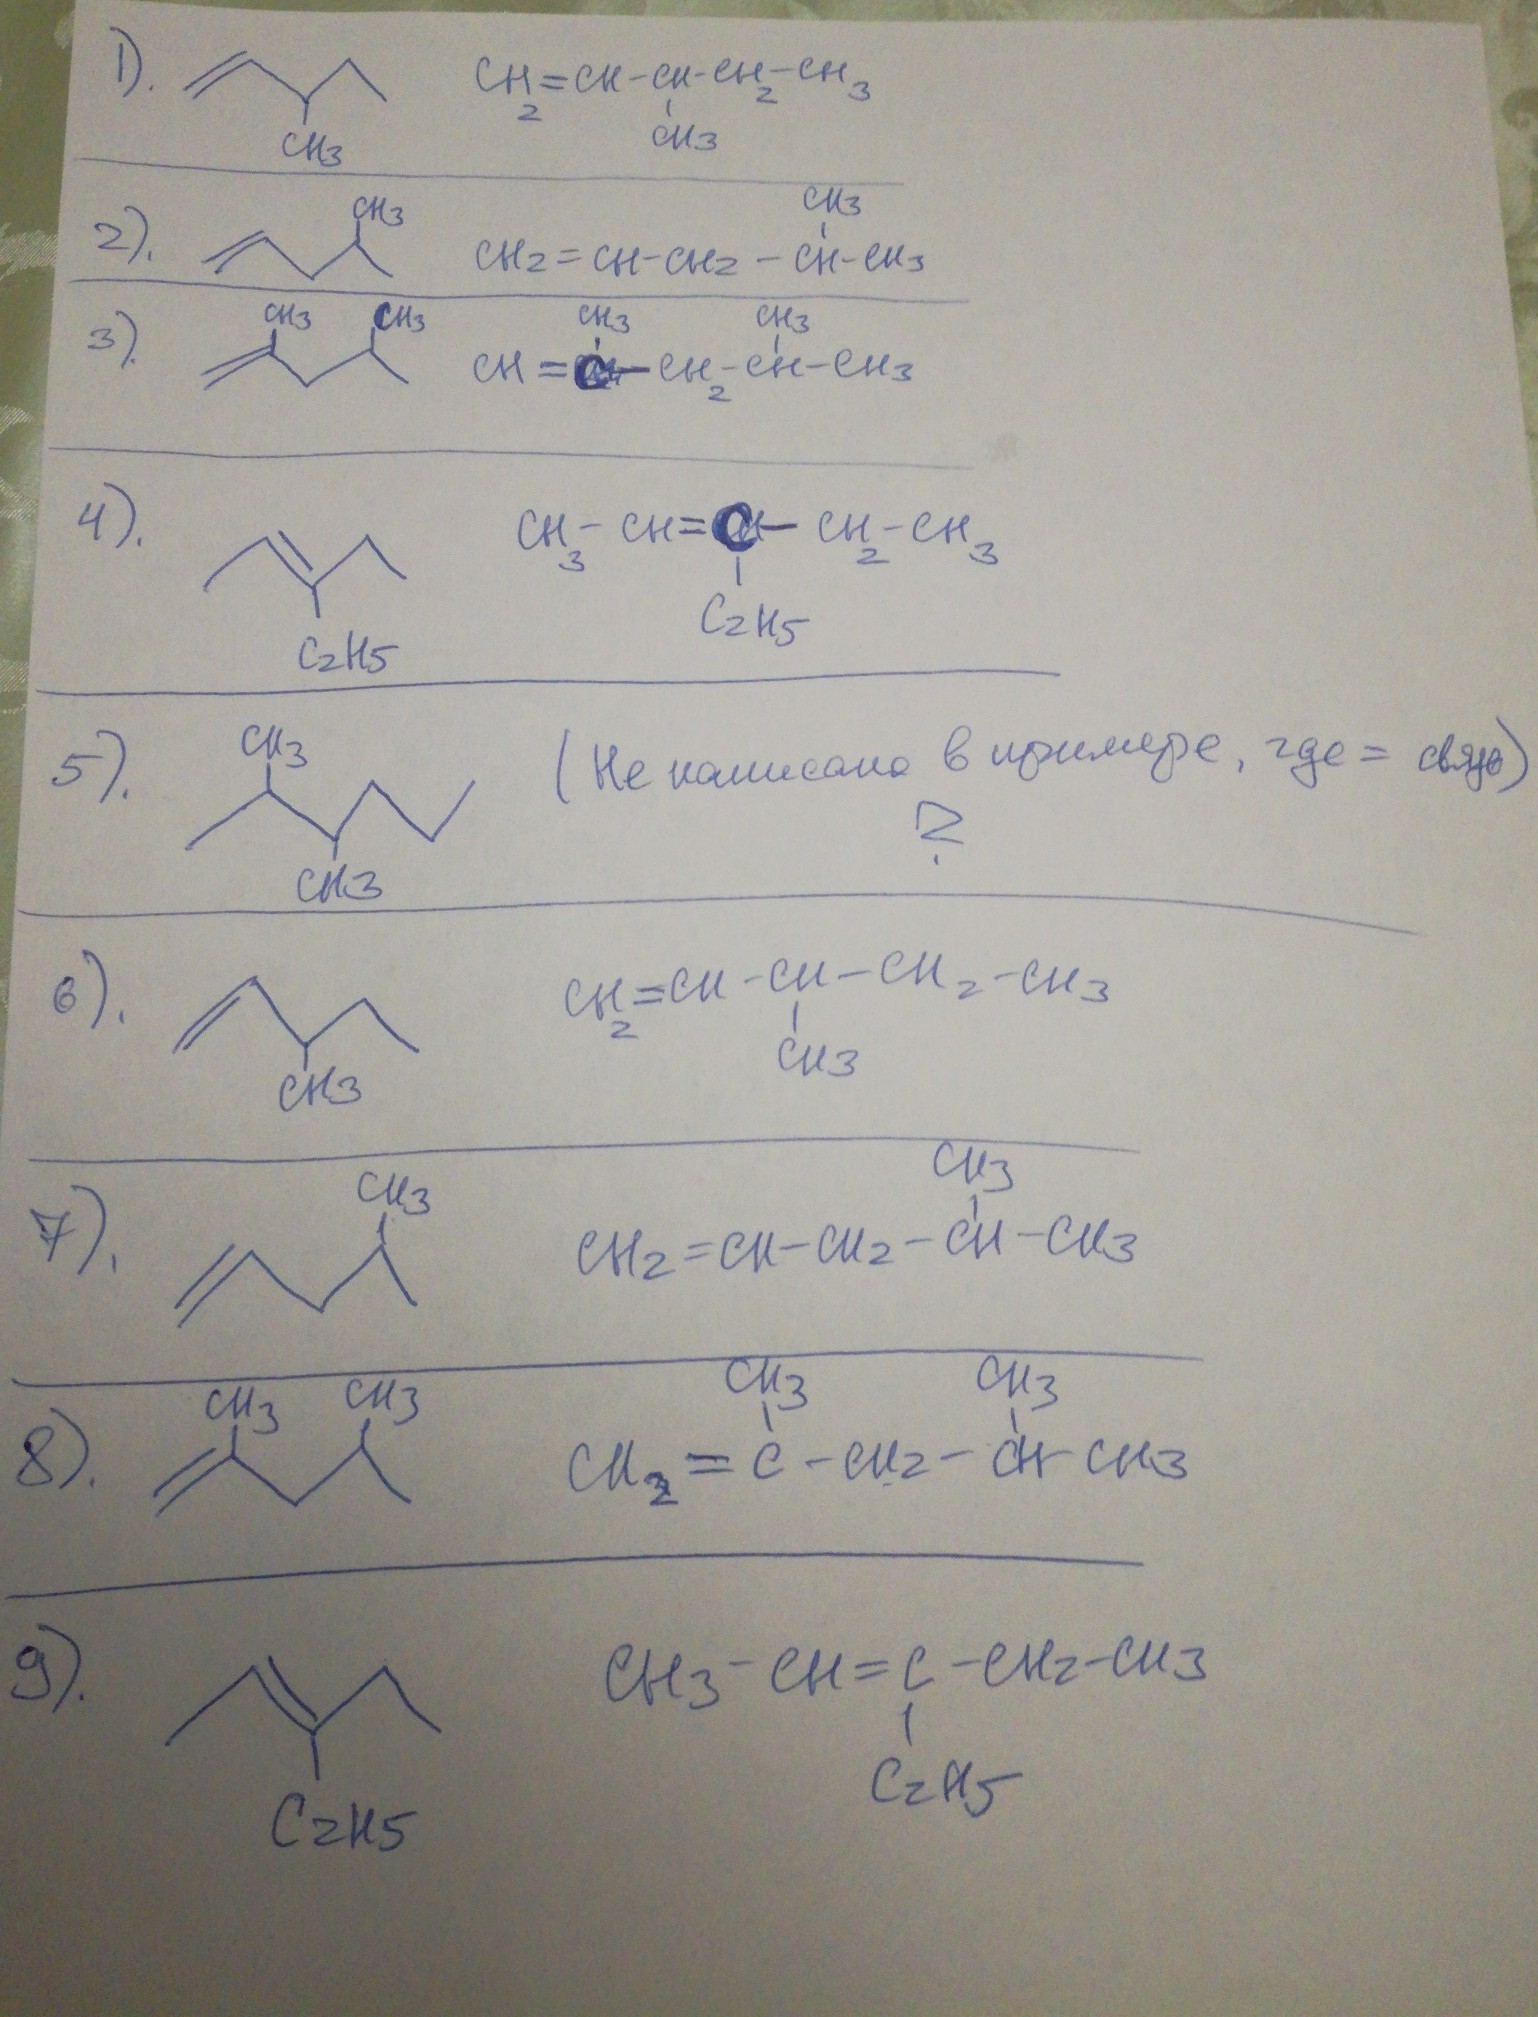 1).
CH2=CH-CH-CH2-CH3
CH3
CH3
CH3
CH3
2).
CH2=CH-CH2-CH-CH3
CH3 CH3
CH3 CH3
3).
CH=C-CH2-CH-CH3
4).
CH3-CH=C-CH2-CH3
C2H5
C2H5
CH3
5).
(Не написано в примере, где = связь)
?
CH3
6).
CH2=CH-CH-CH2-CH3
CH3
CH3
CH3
CH3
7).
CH2=CH-CH2-CH-CH3
CH3 CH3
CH3 CH3
8).
CH2=C-CH2-CH-CH3
9).
CH3-CH=C-CH2-CH3
C2H5
C2H5